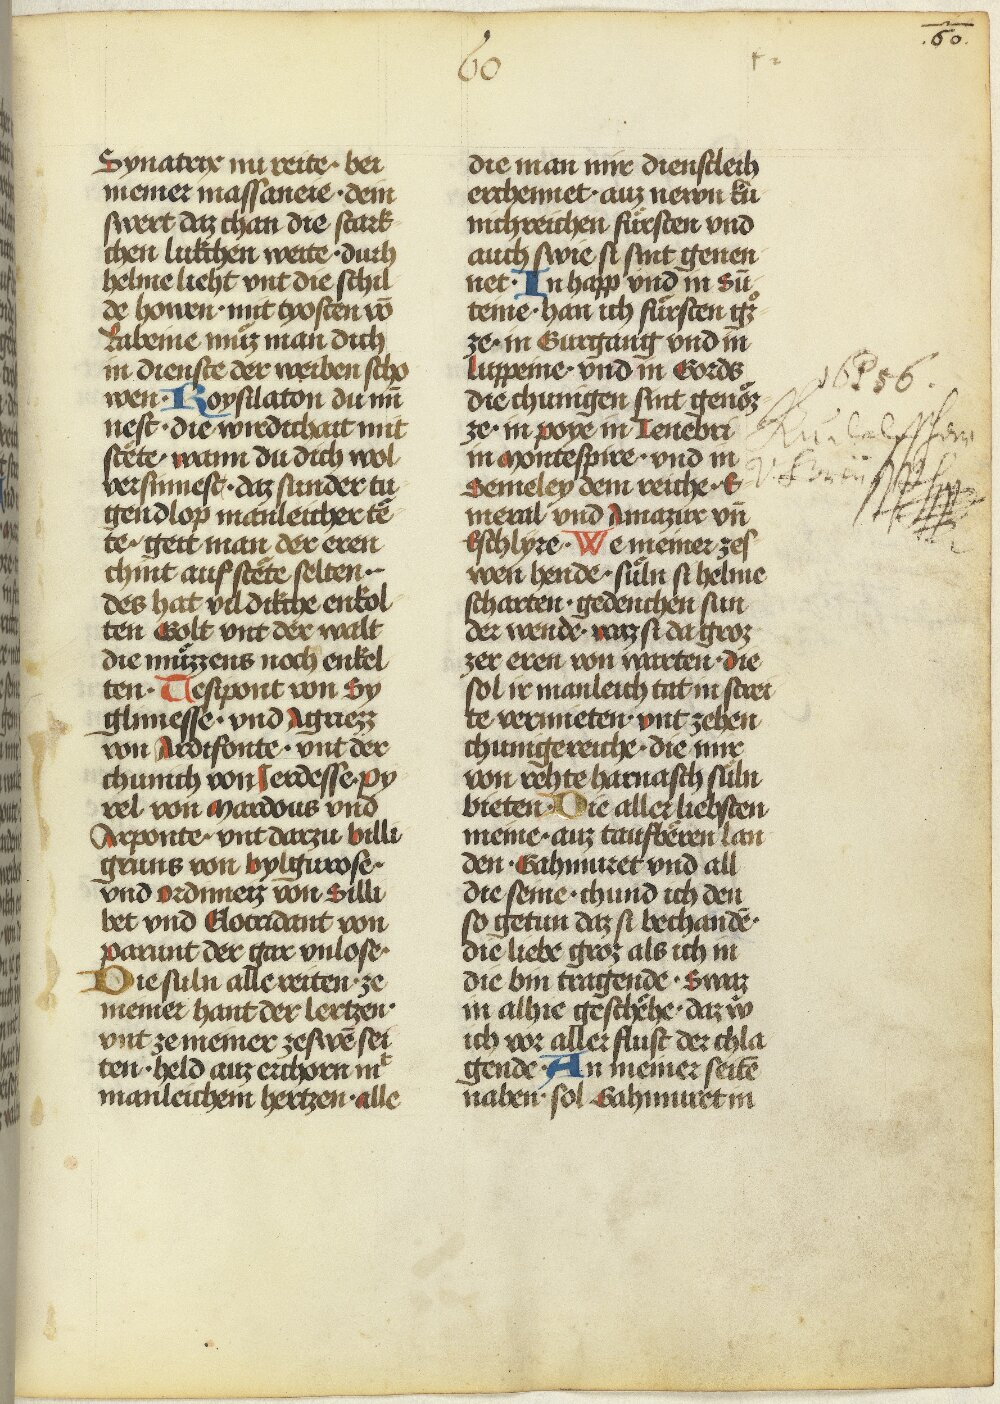 60
.60.
Synatrix nu reite · bei
meiner massanere · dein
swert daz chan die stark
chen lukchen weite · durh
helme lieht vnt die schil
de howen · mit tyosten vō
Labeine muͤz man dich
in dienste der weiben scho
wen · Roysilaton du nīn
nest · die wirdichait mit
stēte · wann du dich wol
versinnest · daz sunder tu
gendlop manleicher tē
te · geit man der eren
chint auf stēte selten ·
des hat vil dikche enkol
ten Golt vnt der walt
die muͤzzens noch enkel
ten · Tesipont von Sy
glimesse · vnd Agrezz
von Ardifonte · vnt der
chunich von Jerdesse · Py
rel von Mardous vnd
Arponte · vnt darzu villi
gruns von vylgurose ·
vnd ordimeiz von Silli
bet vnd Clocridant von
parunt der gar vnlose ·
Die suln alle reiten · ze
meiner hant der lertzen ·
vnt ze meiner zeswē sei
ten · held auz erchorn mͭ
manleichem hertzen · alle
die man mir dienstleich
erchennet · auz newn kū
nichreichen fuͤrsten vnd
auch swie si sint genen
net · In happ vnd in Sū
teine · han ich fuͤrsten gͦz
ze · in Gurgang vnd in
luppeine · vnd in Gords
die chunigen sint genoͤz
ze · in poye in Tenebri
in Montespire · vnd in
Semeley dem reiche · S
meral vnd Amazur vn̄
Eschlyre · We meiner zes
wen hende · suͤln si helme
scharten · gedenchen sun
der wende · waz si da groz
zer eren von warten · die
sol ir manleich tat in strei
te vermieten · vnt zehen
chunigereiche · die mir
von rehte harnasch suln
bieten · Die aller liebsten
meine · auz taufbēren lan
den · Gahmuret vnd all
die seine · chund ich den
so getun daz si bechandē ·
die liebe groz als ich in
die bin tragende · Swaz
in alhie geschēhe · daz wͦ
ich vor aller flust der chla
gende · An meiner seitē
naben · sol Gahmuret in